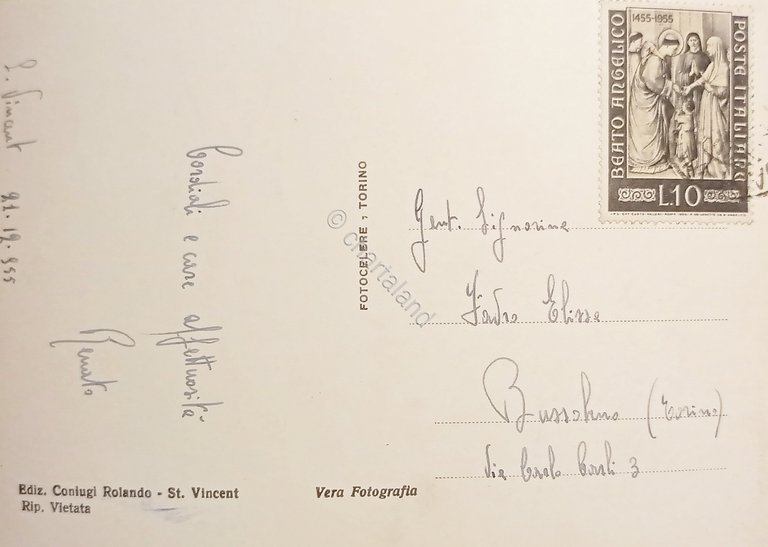 S. Vincent 21.12.955
Cordiali e care affettuosità
Renato
FOTOCELERE, TORINO
© Chartaland
1455-1955
BEATO ANGELICO
POSTE ITALIANE
L.10
Gent. Signorina
Elissa
Bussoleno (Torino)
Via Carlo Carli 3
Ediz. Coniugi Rolando - St. Vincent
Rip. Vietata
Vera Fotografia